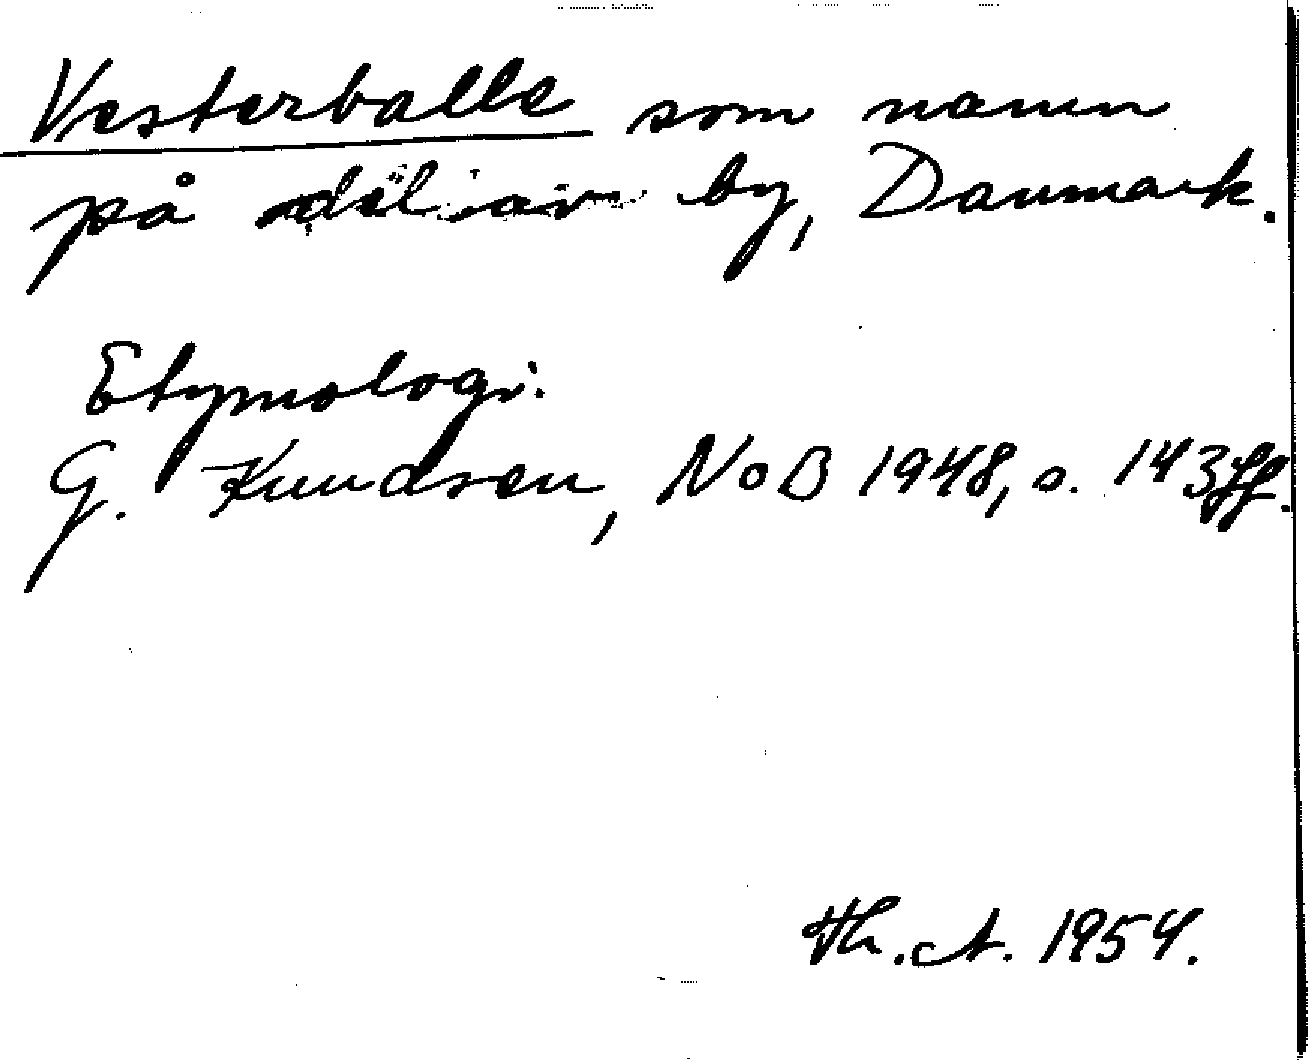 Vesterballe som namn
på del av by, Danmark.
Etymologi:
G. Knudsen, NoB 1948, s. 143 ff.
Th. A. 1954.